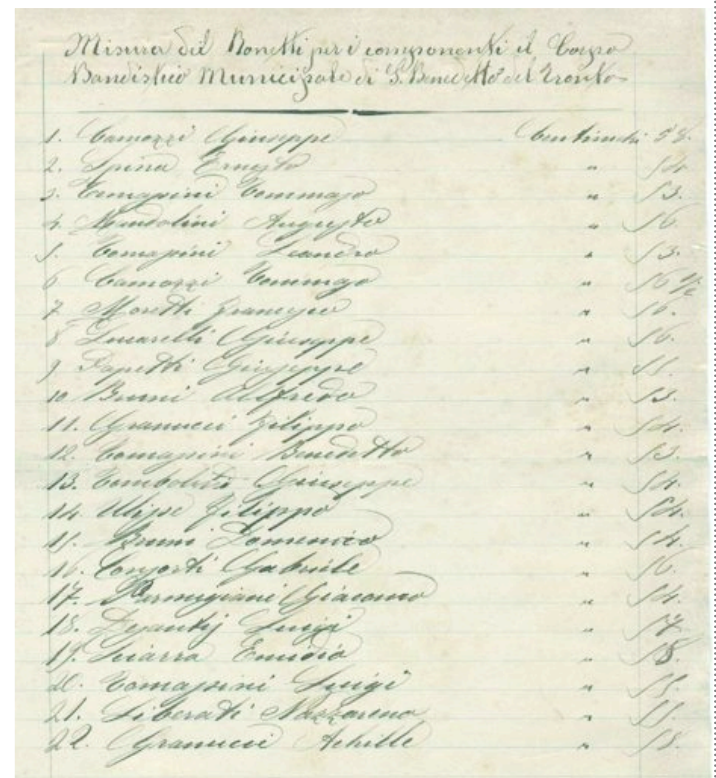 Misura dei Bonetti per i componenti il Corpo
Bandistico Municipale di S. Benedetto del Tronto
1. Camozzi Giuseppe Centimetri 58.
2. Spina Ernesto " 54.
3. Tomassini Tommaso " 53.
4. Mandolini Augusto " 56.
5. Tomassini Leandro " 53.
6. Camozzi Tommaso " 56 1/2
7. Moretti Francesco " 56.
8. Lucarelli Giuseppe " 56.
9. Papetti Giuseppe " 55.
10. Bruni Alfredo " 53.
11. Granucci Filippo " 54.
12. Tomassini Benedetto " 53.
13. Tombolini Giuseppe " 54.
14. Ulisse Filippo " 54.
15. Bruni Domenico " 54.
16. Consorti Gabriele " 56.
17. Parmigiani Giacomo " 54.
18. Luigi " 57.
19. Sciarra Emidio " 58.
20. Tomassini Luigi " 55.
21. Liberati Nazzareno " 55.
22. Granucci Achille "